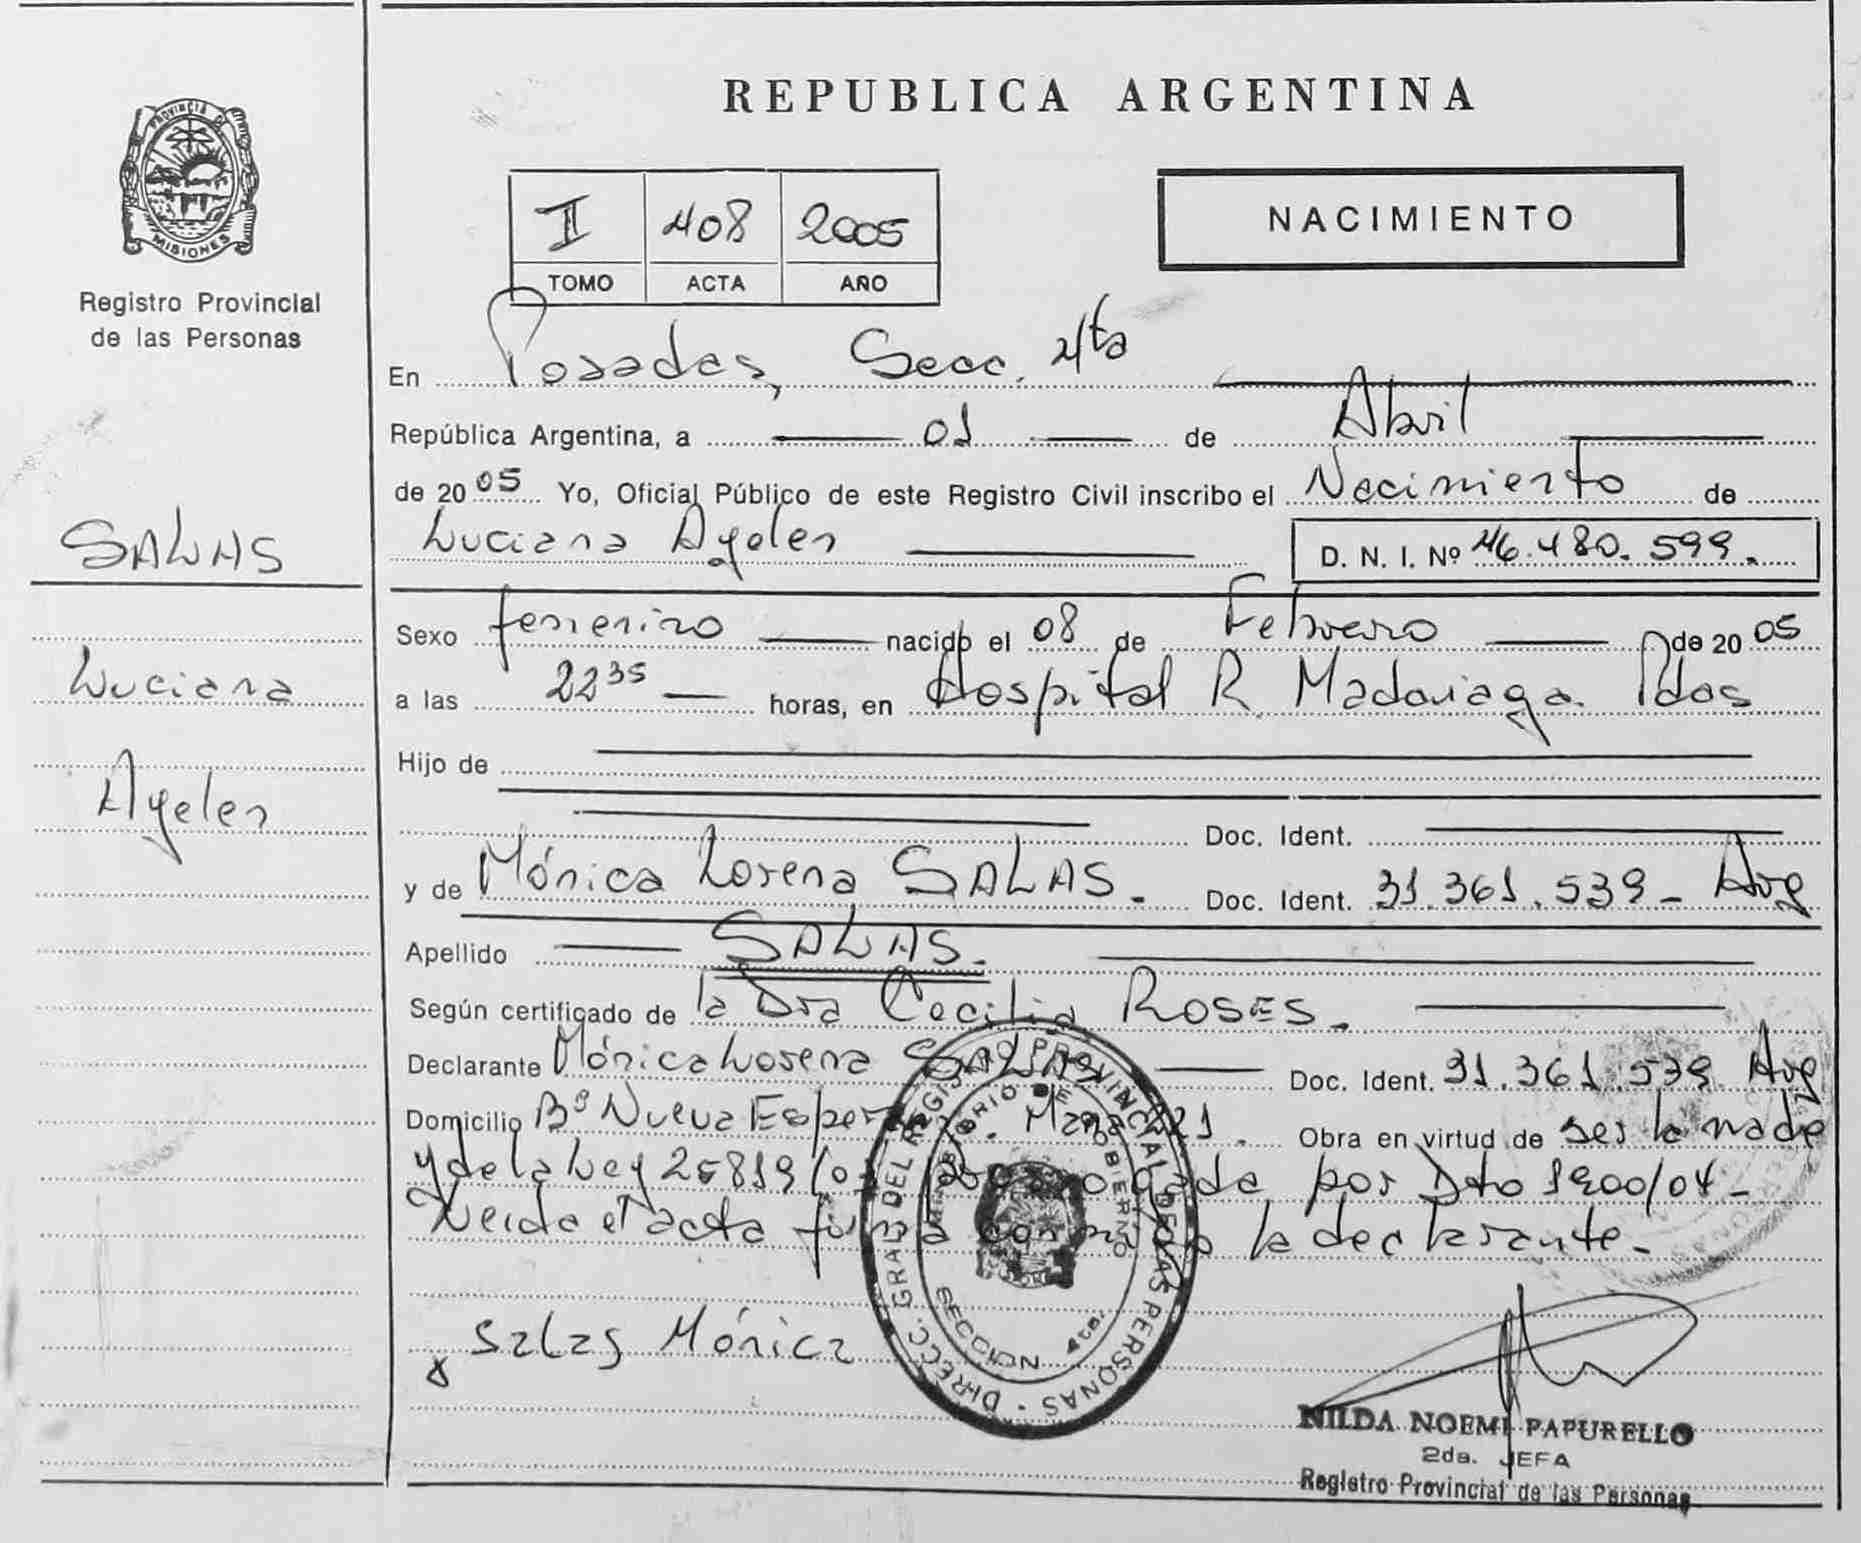 PROVINCIA DE
MISIONES
Registro Provincial
de las Personas
SALAS
Luciana
Ayelen
REPUBLICA ARGENTINA
I 408 2005
TOMO ACTA AÑO
NACIMIENTO
En Posadas, Secc. 4ta
República Argentina, a 01 de Abril
de 2005 Yo, Oficial Público de este Registro Civil inscribo el Nacimiento de
Luciana Ayelen D. N. I. Nº 46.480.599.
Sexo femenino nacido el 08 de Febrero de 2005
a las 22 35 horas, en Hospital R. Madariaga. Pdas
Hijo de
Doc. Ident.
y de Mónica Lorena SALAS. Doc. Ident. 31.361.539 - Arg
Apellido SALAS.
Según certificado de la Dra Cecilia ROSES.
Declarante Mónica Lorena SALAS Doc. Ident. 31.361.539 Arg
Domicilio Bº Nueva Esper . Mza 21. Obra en virtud de ser la madre
y de la Ley 25819/03 prorrogada por Dto 1900/04-
Leida el acta firma conmigo la declarante.
Salas Mónica
DIRECC. GRAL. DEL REGISTRO PROVINCIAL DE LAS PERSONAS
GOBIERNO
SECCION 4ta.
NILDA NOEMI PAPURELLO
2da. JEFA
Registro Provincial de las Personas